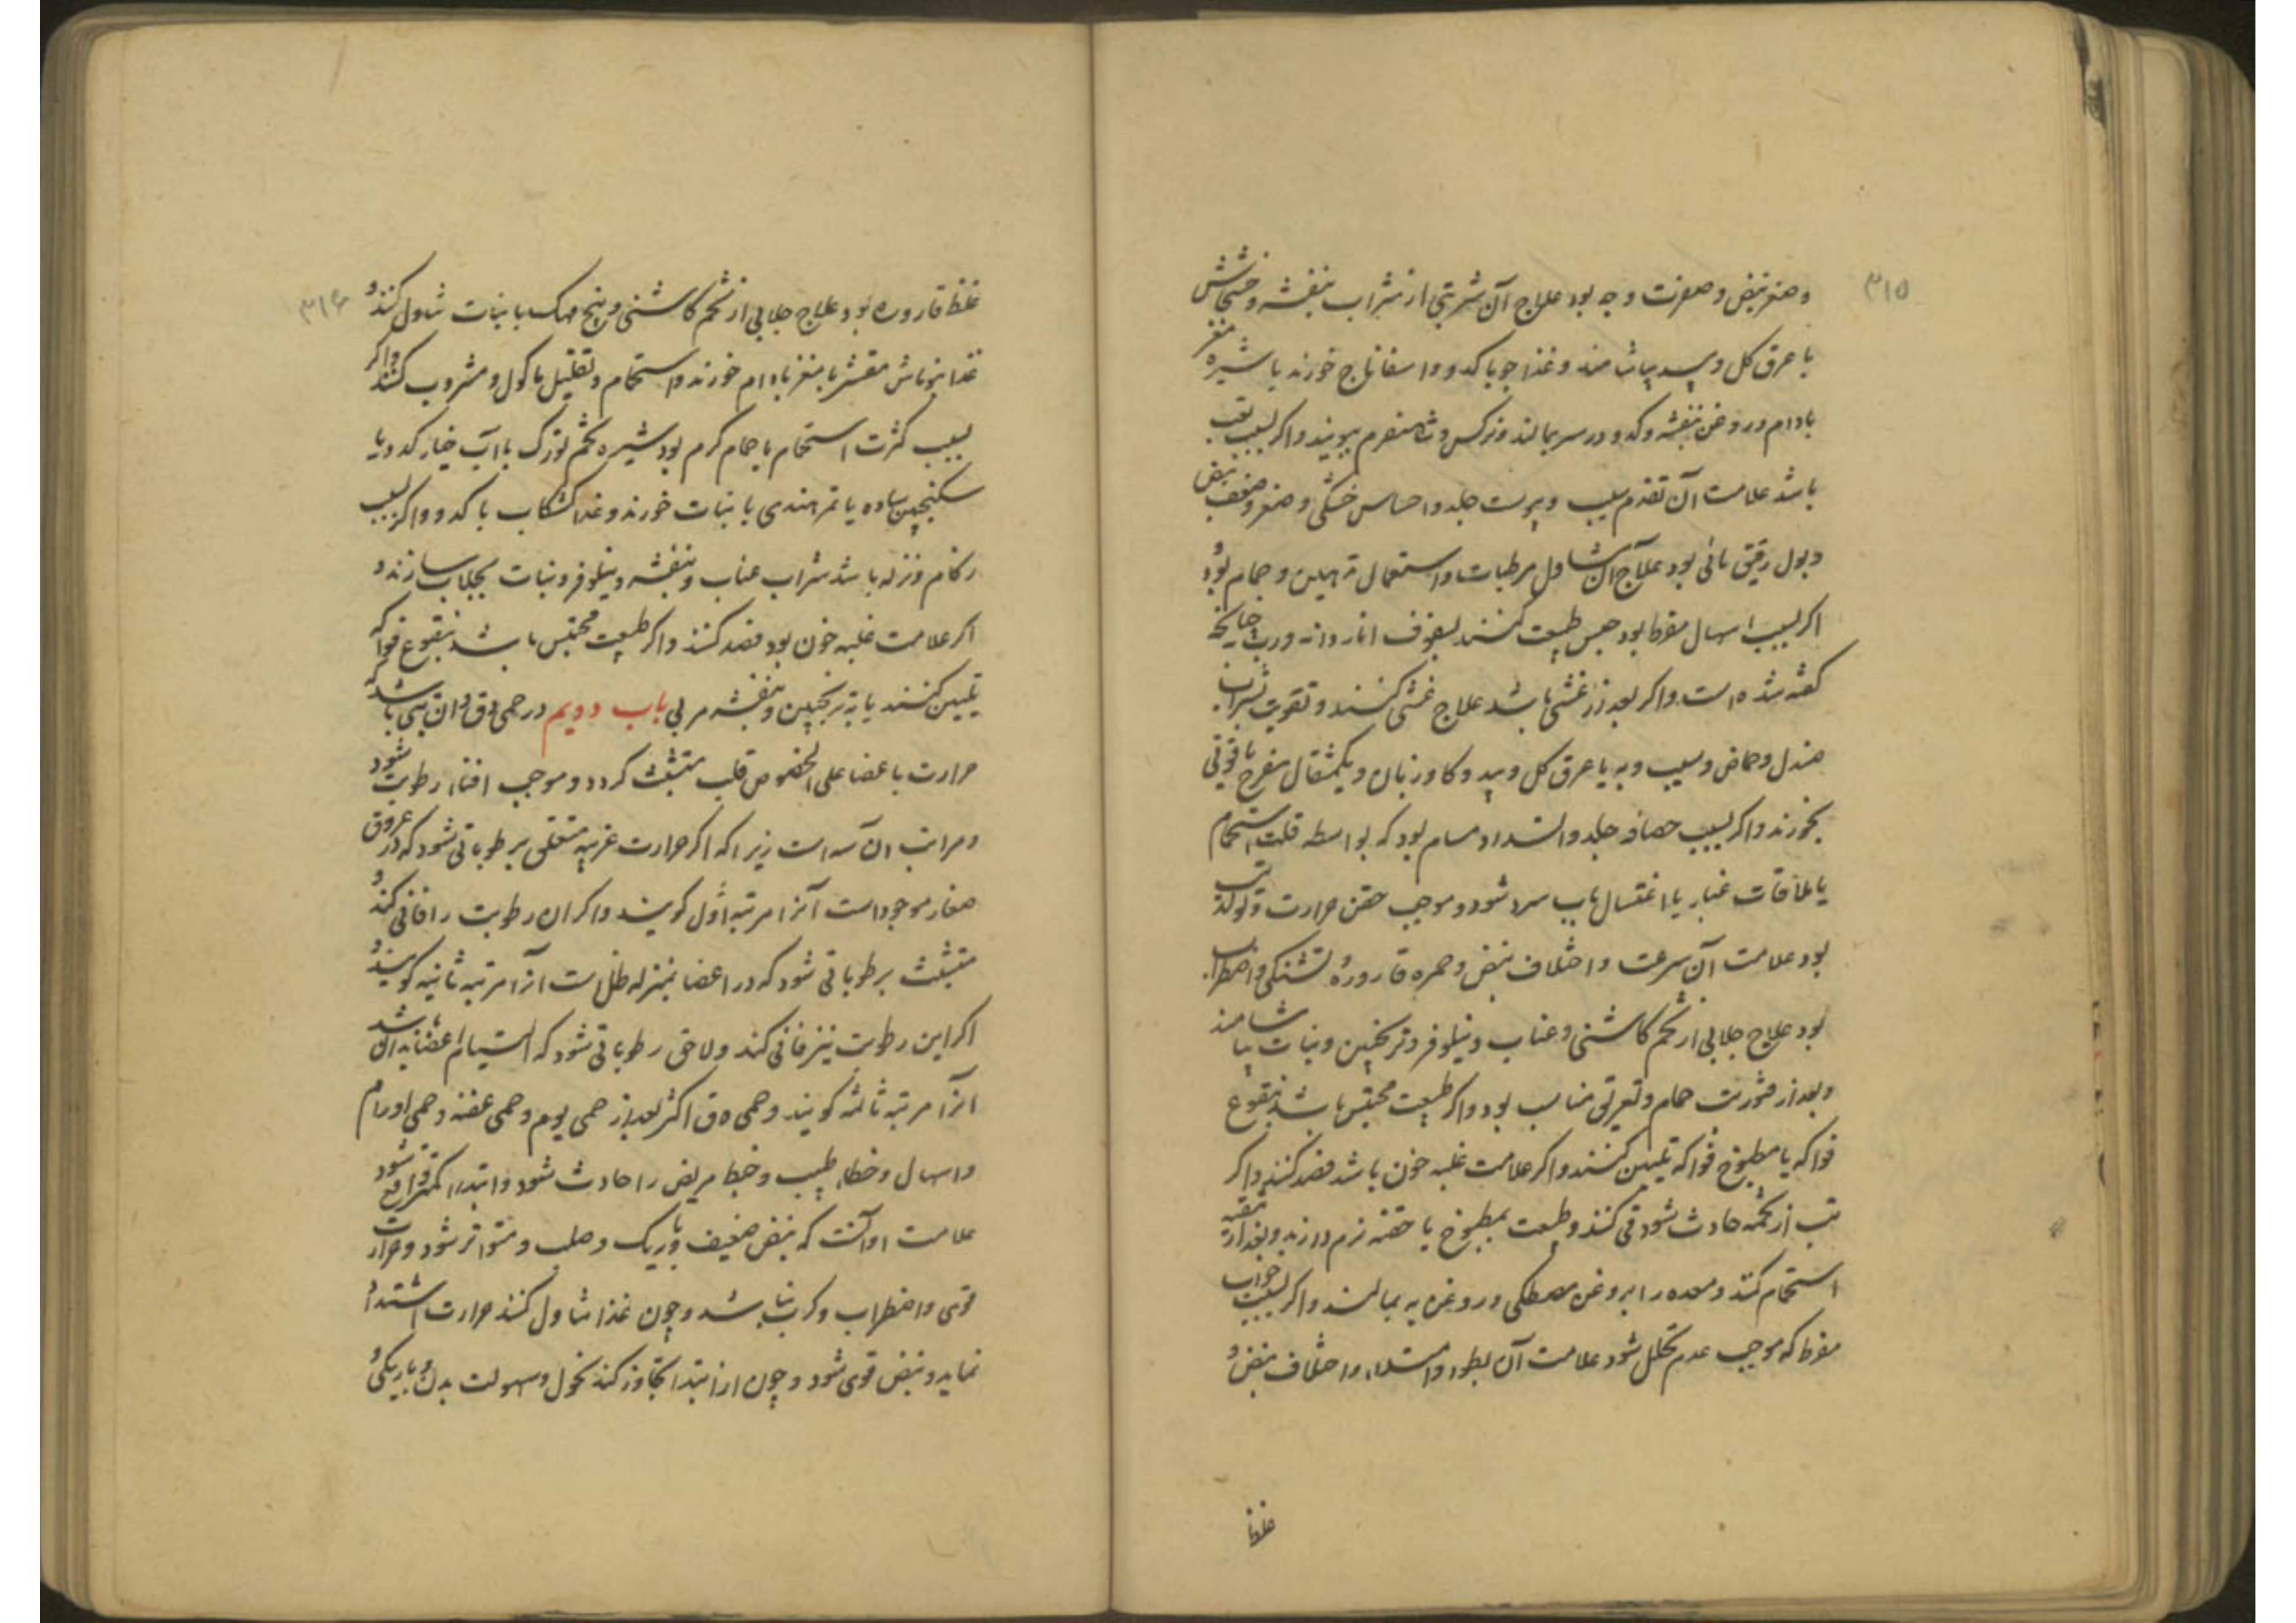 ۳۱۵
وصغر نبض و صفرت وجه بود علاج آن شربتی از شراب بنفشه و خشخاش
با عرق کل و بید بیاشامند و غذا جو با کدو و اسفاناج خورند با شیره مغز
بادام و روغن بنفشه و کدو در سر بمالند و نرکس و شاهسفرم ببویند و اکر بسبب تعب
باشد علامت آن تقدم سبب و یبوست جلد و احساس خشکی و صغر و ضعف نبض
و بول رقیق مائی بود علاج آن تناول مرطبات و استعمال تدهین و حمام بود و
اکر بسبب اسهال مفرط بود حبس طبیعت کنند بسفوف انار دانه و رب چنانچه
کفته شده است و اکر بعد از غشی باشد علاج غشی کنند و تقویت بشراب
صندل و حماض و سیب و به با عرق کل و بید و کاو زبان و یکمثقال مفرح یاقوتی
بخورند و اکر بسبب حصافه جلد و انسداد مسام بود که بواسطه قلت استحمام
یا ملاقات غبار یا اغتسال بآب سرد شود و موجب حقن حرارت و تولد تب
بود علامت آن سرعت و اختلاف نبض و حمره قاروره و تشنکی و اضطراب
بود علاج جلابی از تخم کاشنی و عناب و نیلوفر و ترنجبین و نبات بیاشامند
و بعد از فتورت حمام و تعرق مناسب بود و اکر طبیعت محتبس باشد بنقوع
فواکه یا مطبوخ فواکه تلیین کنند و اکر علامت غلبه خون باشد فصد کنند و اکر
تب از تخمه حادث شود قی کنند و طبیعت بمطبوخ یا حقنه نرم دارند و بعد از تنقیه
استحمام کنند و معده را بروغن مصطکی و روغن به بمالند و اکر بسبب خواب
مفرط که موجب عدم تحلل شود علامت آن بطوء و امتلاء و اختلاف نبض و
غلظ
۳۱۶
غلظ قاروره بود علاج جلابی از تخم کاشنی و بیخ مهک با نبات تناول کنند و
غذا بوماش مقشر با مغز بادام خورند و استحمام و تقلیل ماکول و مشروب کنند و اکر
بسبب کثرت استحمام با حمام کرم بود شیره تخم تورک با آب خیار کدو یا
سکنجبین ساده یا تمر هندی با نبات خورند و غذا کشکاب با کدو و اکر بسبب
زکام و نزله باشد شراب عناب و بنفشه و نیلوفر و نبات بجلاب سازند و
اکر علامت غلبه خون بود فصد کنند و اکر طبیعت محتبس باشد بنقوع فواکه
تلیین کنند یا به ترنجبین و بنفشه مربی باب دویم در حمی دق و ان تبی باشد که
حرارت باعضا علی الخصوص قلب متشبث کردد و موجب افناء رطوبت شود
و مراتب ان سه است زیرا که اکر حرارت غریبه متعلق برطوباتی شود که در عروق
صغار موجود است آنرا مرتبه اول کویند و اکر ان رطوبت را فانی کند و
متشبث برطوباتی شود که در اعضا بمنزله طل است انرا مرتبه ثانیه کویند و
اکر این رطوبت نیز فانی کند و لاحق رطوباتی شود که التیام اعضا بدان باشد
انرا مرتبه ثالثه کویند و حمی دق اکثر بعد از حمی یوم و حمی عفنه و حمی اورام
و اسهال و خطاء طبیب و خبط مریض را حادث شود و ابتداء کمتر واقع شود
علامت او آنست که نبض ضعیف و باریک و صلب و متواتر شود و حرارت
قوی و اضطراب و کرب نباشد و چون غذا تناول کنند حرارت اشتداد
نماید و نبض قوی شود و چون از ابتدا تجاوز کند نحول و سهولت بدن و باریکی و